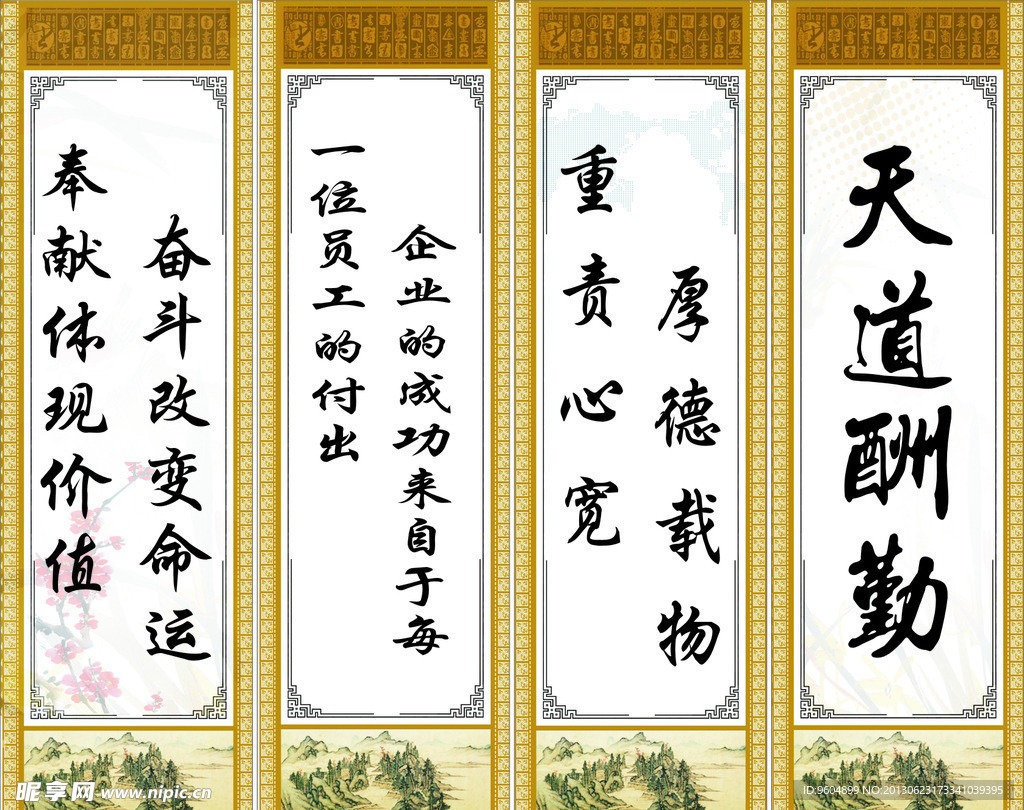 天道酬勤
厚德载物
重责心宽
企业的成功来自于每
一位员工的付出
奋斗改变命运
奉献体现价值
昵享网 www.nipic.cn
ID:9604899 NO:20130623173341039395